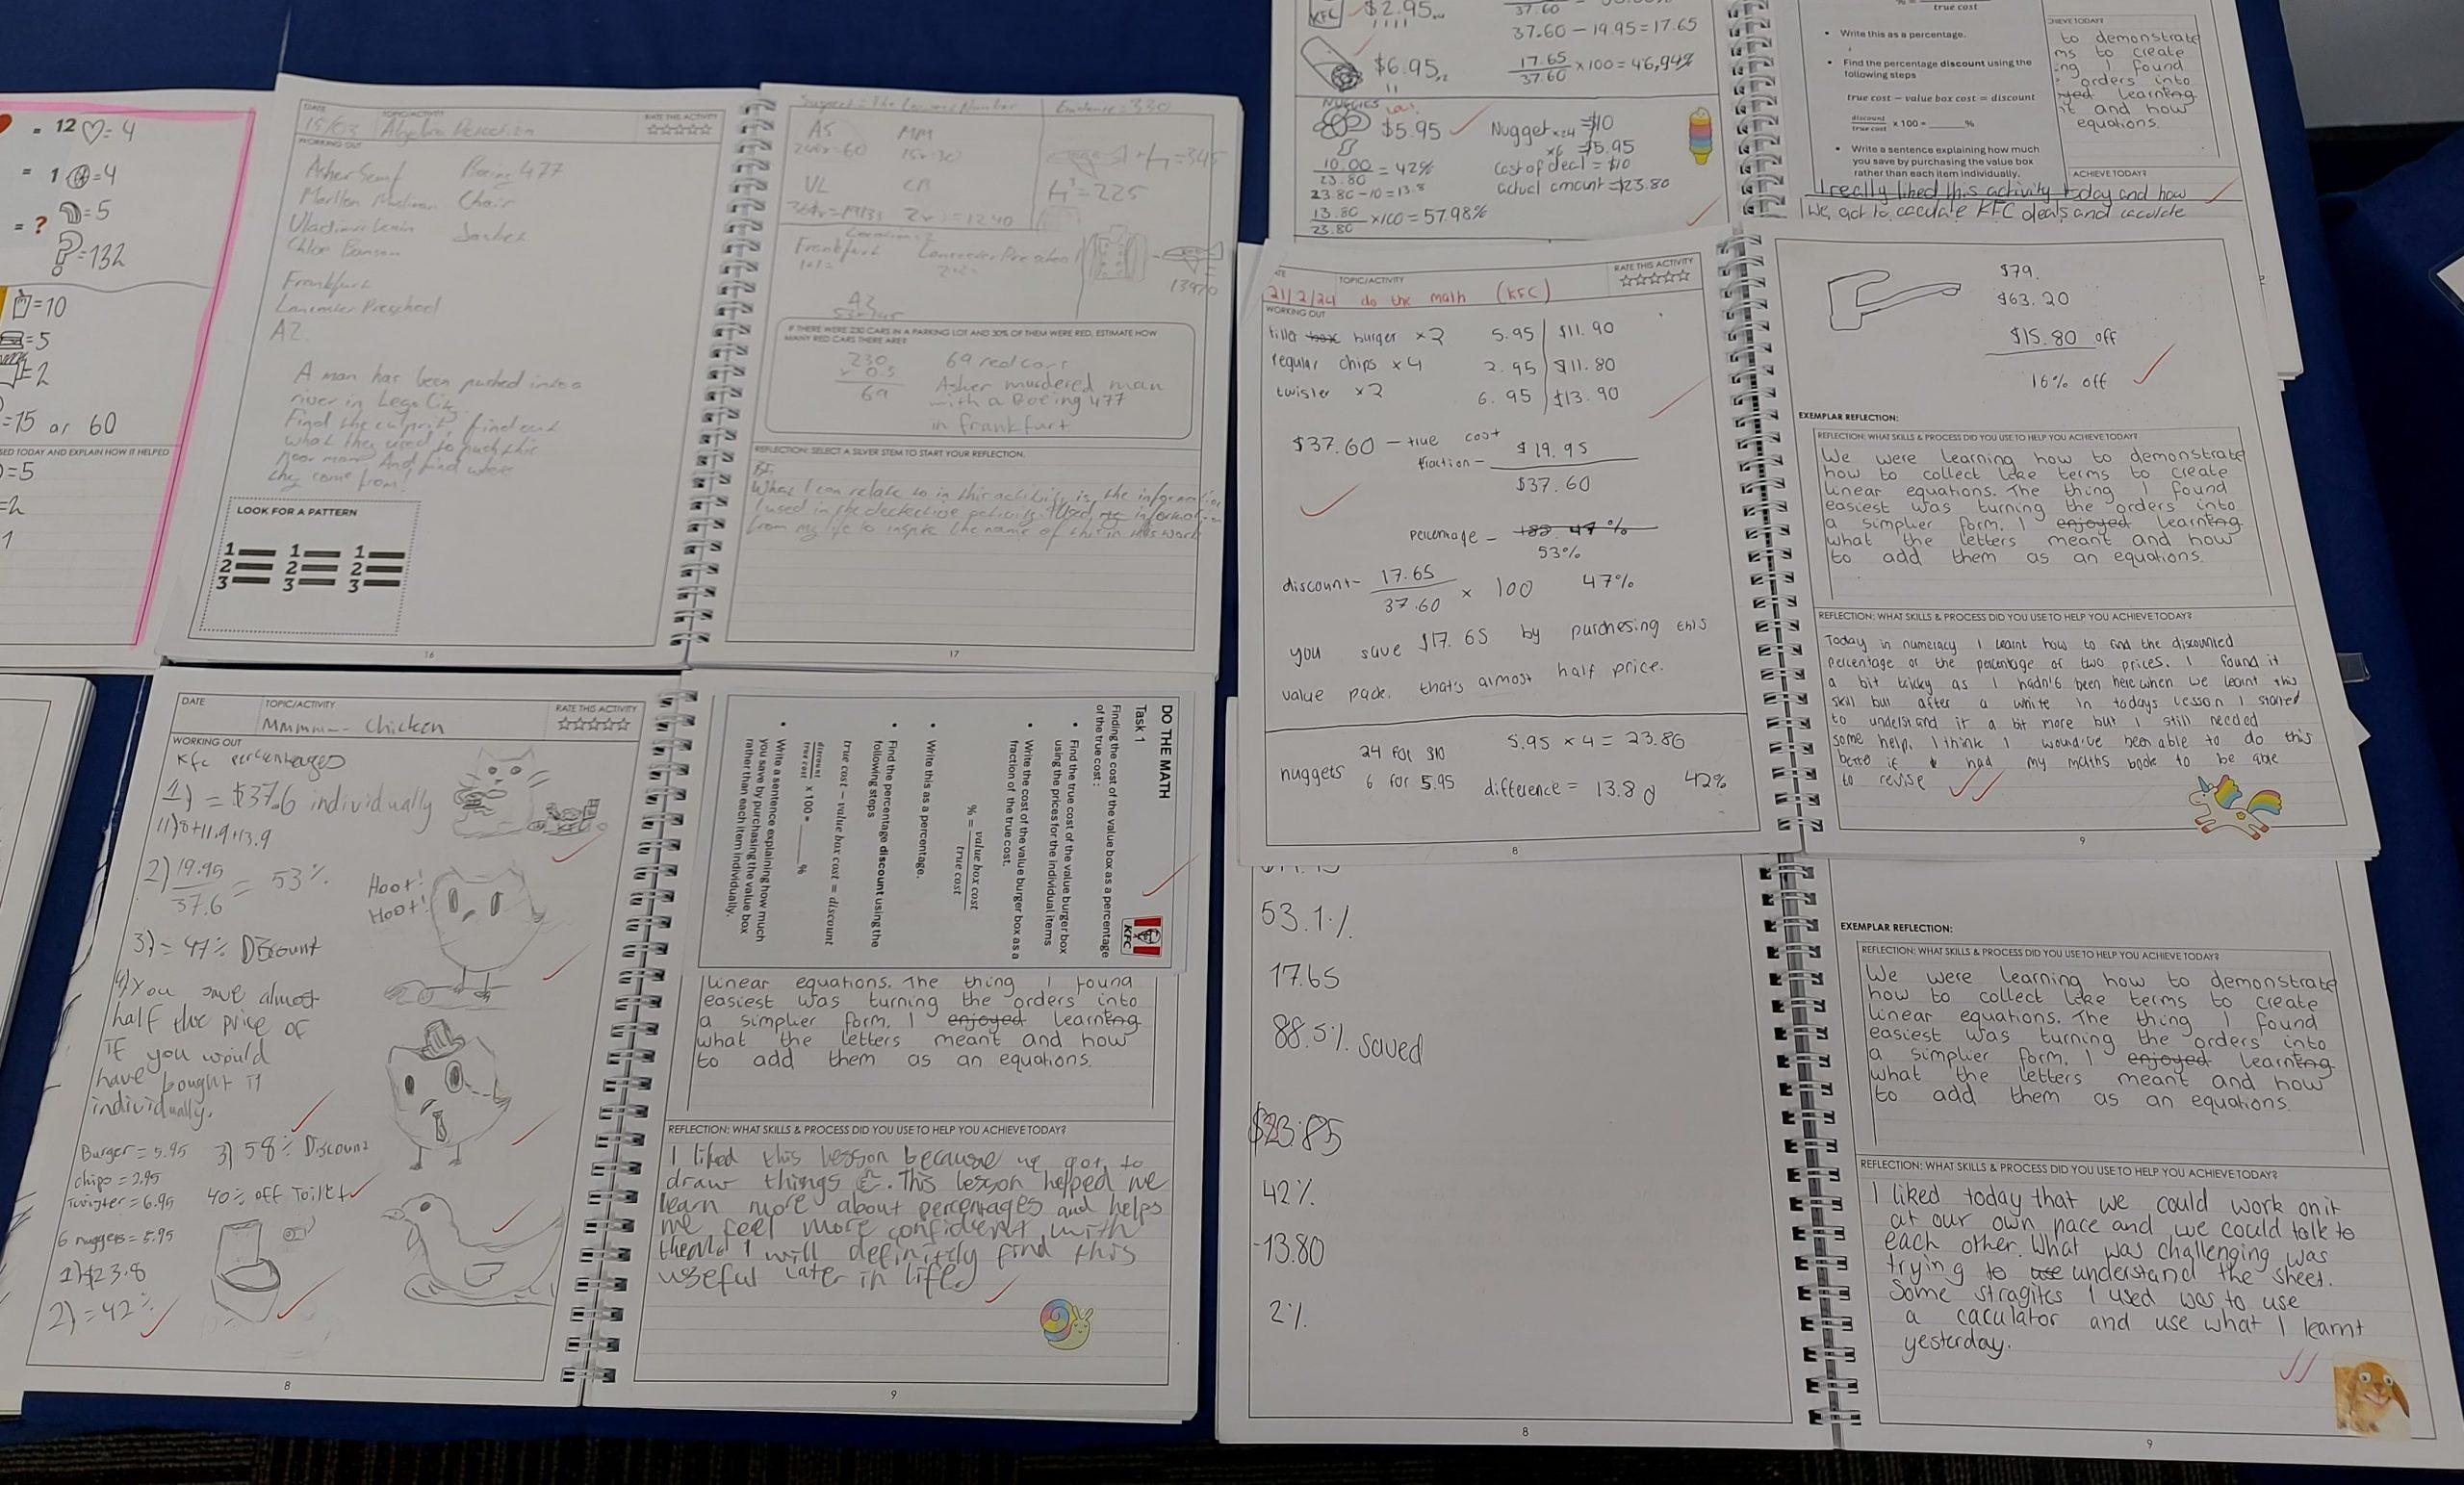 = 12 = 4
= 1 = 4
= 5
= ?
? = 132
= 10
= 5
= 2
= 15 or 60
SED TODAY AND EXPLAIN HOW IT HELPED
= 5
= 2
1
DATE
15/03
TOPIC/ACTIVITY
Algebra
RATE THIS ACTIVITY
WORKING OUT
Asher
Boeing 477
Chair
Vladimir Lenin
Chloe
Frankfurt
Lancaster Preschool
AZ
A man has been pushed into a
river in Lego City.
Find the culprit, find out
what they used to push this
poor man. And find where
they come from!
LOOK FOR A PATTERN
1 1 1
2 2 2
3 3 3
16
AS MM
VL CB
= 345
= 225
Frankfurt
AZ
IF THERE WERE 230 CARS IN A PARKING LOT AND 30% OF THEM WERE RED, ESTIMATE HOW
MANY RED CARS THERE ARE?
230 69 red cars
x 0.3 Asher murdered man
69 with a Boeing 477
in Frankfurt
REFLECTION: SELECT A SILVER STEM TO START YOUR REFLECTION.
What I can relate to in this activity is the information
I used in the
from my life to
17
DATE
TOPIC/ACTIVITY
Mmmm-- Chicken
RATE THIS ACTIVITY
WORKING OUT
Kfc percentages
1) = $37.6 individually
11.8+11.9+13.9
2) 19.95 = 53%
37.6
Hoot!
Hoot!
3) = 47% Discount
4) You save almost
half the price of
if you would
have bought it
individually.
Burger = 5.95 3) 58% Discount
chips = 2.95
Twister = 6.95 40% off Toilet
6 nuggets = 5.95
1) $23.8
2) = 42%
8
DO THE MATH
Task 1
Finding the cost of the value box as a percentage
of the true cost:
• Find the true cost of the value burger box
using the prices for the individual items
• Write the cost of the value burger box as a
fraction of the true cost.
% = value box cost
true cost
• Write this as a percentage.
• Find the percentage discount using the
following steps
true cost – value box cost = discount
discount
true cost x 100 = _____%
• Write a sentence explaining how much
you save by purchasing the value box
rather than each item individually.
KFC
linear equations. The thing I found
easiest was turning the orders into
a simplier form. I enjoyed learning
what the letters meant and how
to add them as an equations.
REFLECTION: WHAT SKILLS & PROCESS DID YOU USE TO HELP YOU ACHIEVE TODAY?
I liked this lesson because we got to
draw things. This lesson helped me
learn more about percentages and helps
me feel more confident with
them. I will definitely find this
useful later in life.
9
KFC $2.95
37.60
37.60 – 19.95 = 17.65
$6.95
17.65 x 100 = 46,94%
37.60
NUGGIES
$5.95
Nugget x24 = $10
x6 = $5.95
10.00 = 42%
23.80
cost of deal = $10
23.80 – 10 = 13.8
actual amount = $23.80
13.80 x 100 = 57.98%
23.80
true cost
• Write this as a percentage.
• Find the percentage discount using the
following steps
true cost – value box cost = discount
discount
true cost x 100 = _____%
• Write a sentence explaining how much
you save by purchasing the value box
rather than each item individually.
HIEVE TODAY?
to demonstrate
ms to create
ing I found
orders into
learning
it and how
equations.
ACHIEVE TODAY?
I really liked this activity today and how
We got to caculate KFC deals and caculate
TOPIC/ACTIVITY
RATE THIS ACTIVITY
21/2/24 do the math (KFC)
WORKING OUT
filler box burger x2 5.95 $11.90
regular chips x4 2.95 $11.80
twister x2 6.95 $13.90
$37.60 – true cost
fraction – $19.95
$37.60
percentage – 47%
53%
discount – 17.65 x 100 47%
37.60
you save $17.65 by purchesing this
value pack. that's almost half price.
nuggets 24 for $10
6 for 5.95
5.95 x 4 = 23.80
difference = 13.80 42%
8
$79.
$63.20
$15.80 off
16% off
EXEMPLAR REFLECTION:
REFLECTION: WHAT SKILLS & PROCESS DID YOU USE TO HELP YOU ACHIEVE TODAY?
We were learning how to demonstrate
how to collect like terms to create
linear equations. The thing I found
easiest was turning the orders into
a simplier form. I enjoyed learning
what the letters meant and how
to add them as an equations.
REFLECTION: WHAT SKILLS & PROCESS DID YOU USE TO HELP YOU ACHIEVE TODAY?
Today in numeracy I learnt how to find the discounted
percentage or the percentage of two prices. I found it
a bit tricky as I hadn't been here when we learnt this
skill but after a while in todays lesson I started
to understand it a bit more but I still needed
some help. I think I would've been able to do this
better if I had my maths book to be able
to revise
9
53.1%
17.65
88.5% saved
$23.85
42%
-13.80
2%
8
EXEMPLAR REFLECTION:
REFLECTION: WHAT SKILLS & PROCESS DID YOU USE TO HELP YOU ACHIEVE TODAY?
We were learning how to demonstrate
how to collect like terms to create
linear equations. The thing I found
easiest was turning the orders into
a simplier form. I enjoyed learning
what the letters meant and how
to add them as an equations.
REFLECTION: WHAT SKILLS & PROCESS DID YOU USE TO HELP YOU ACHIEVE TODAY?
I liked today that we could work on it
at our own pace and we could talk to
each other. What was challenging was
trying to use understand the sheet.
Some stragites I used was to use
a caculator and use what I learnt
yesterday.
9